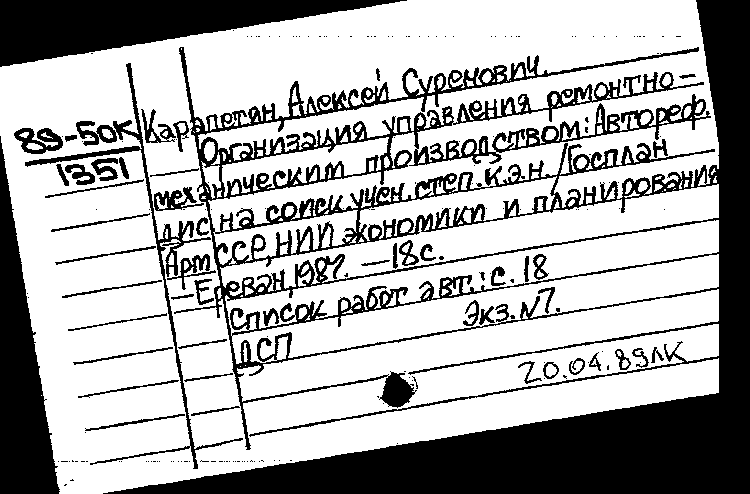 89-50К
1351
Карапетян, Алексей Суренович.
Организация управления ремонтно-
механическим производством: Автореф.
дис на соиск. учен. степ. к.э.н. / Госплан
АрмССР, НИИ экономики и планирования
— Ереван, 1987. — 18 с.
Список работ авт.: с. 18
ДСП Экз. N7.
20.04.89ЛК